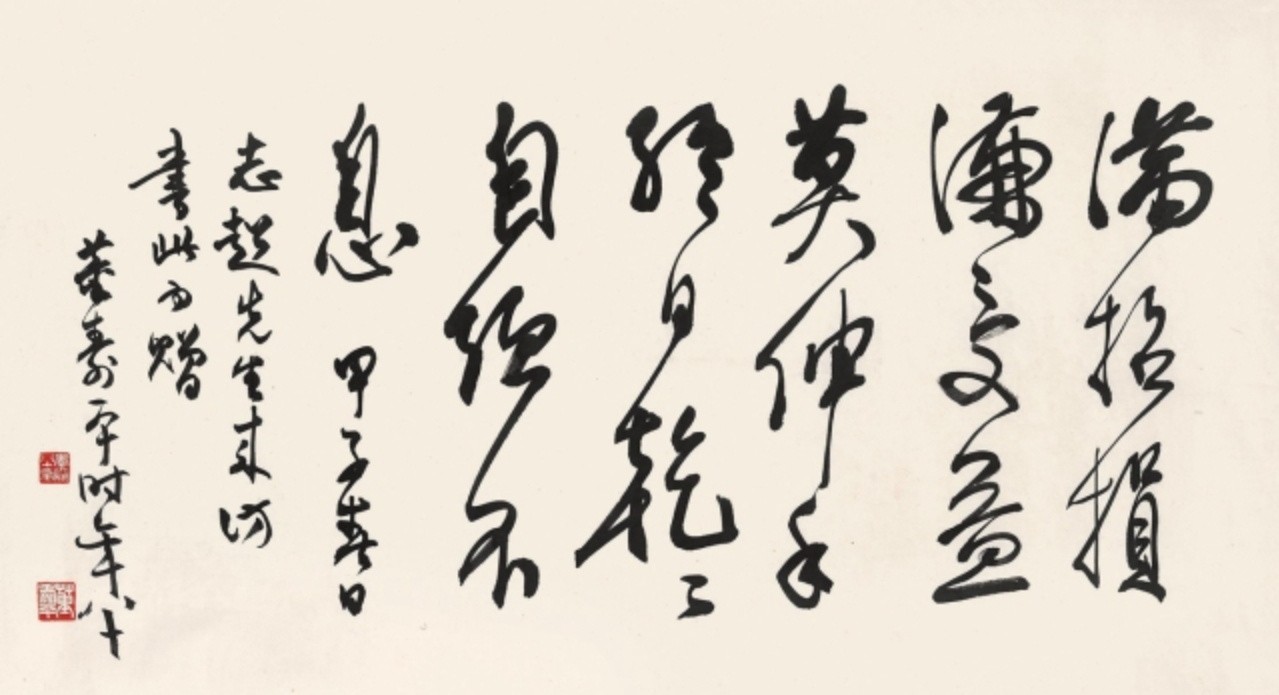 满招損
谦受益
莫伸手
终日乾々
自强不
息 甲子春日
志超先生来访
書此为赠
董寿平时年八十